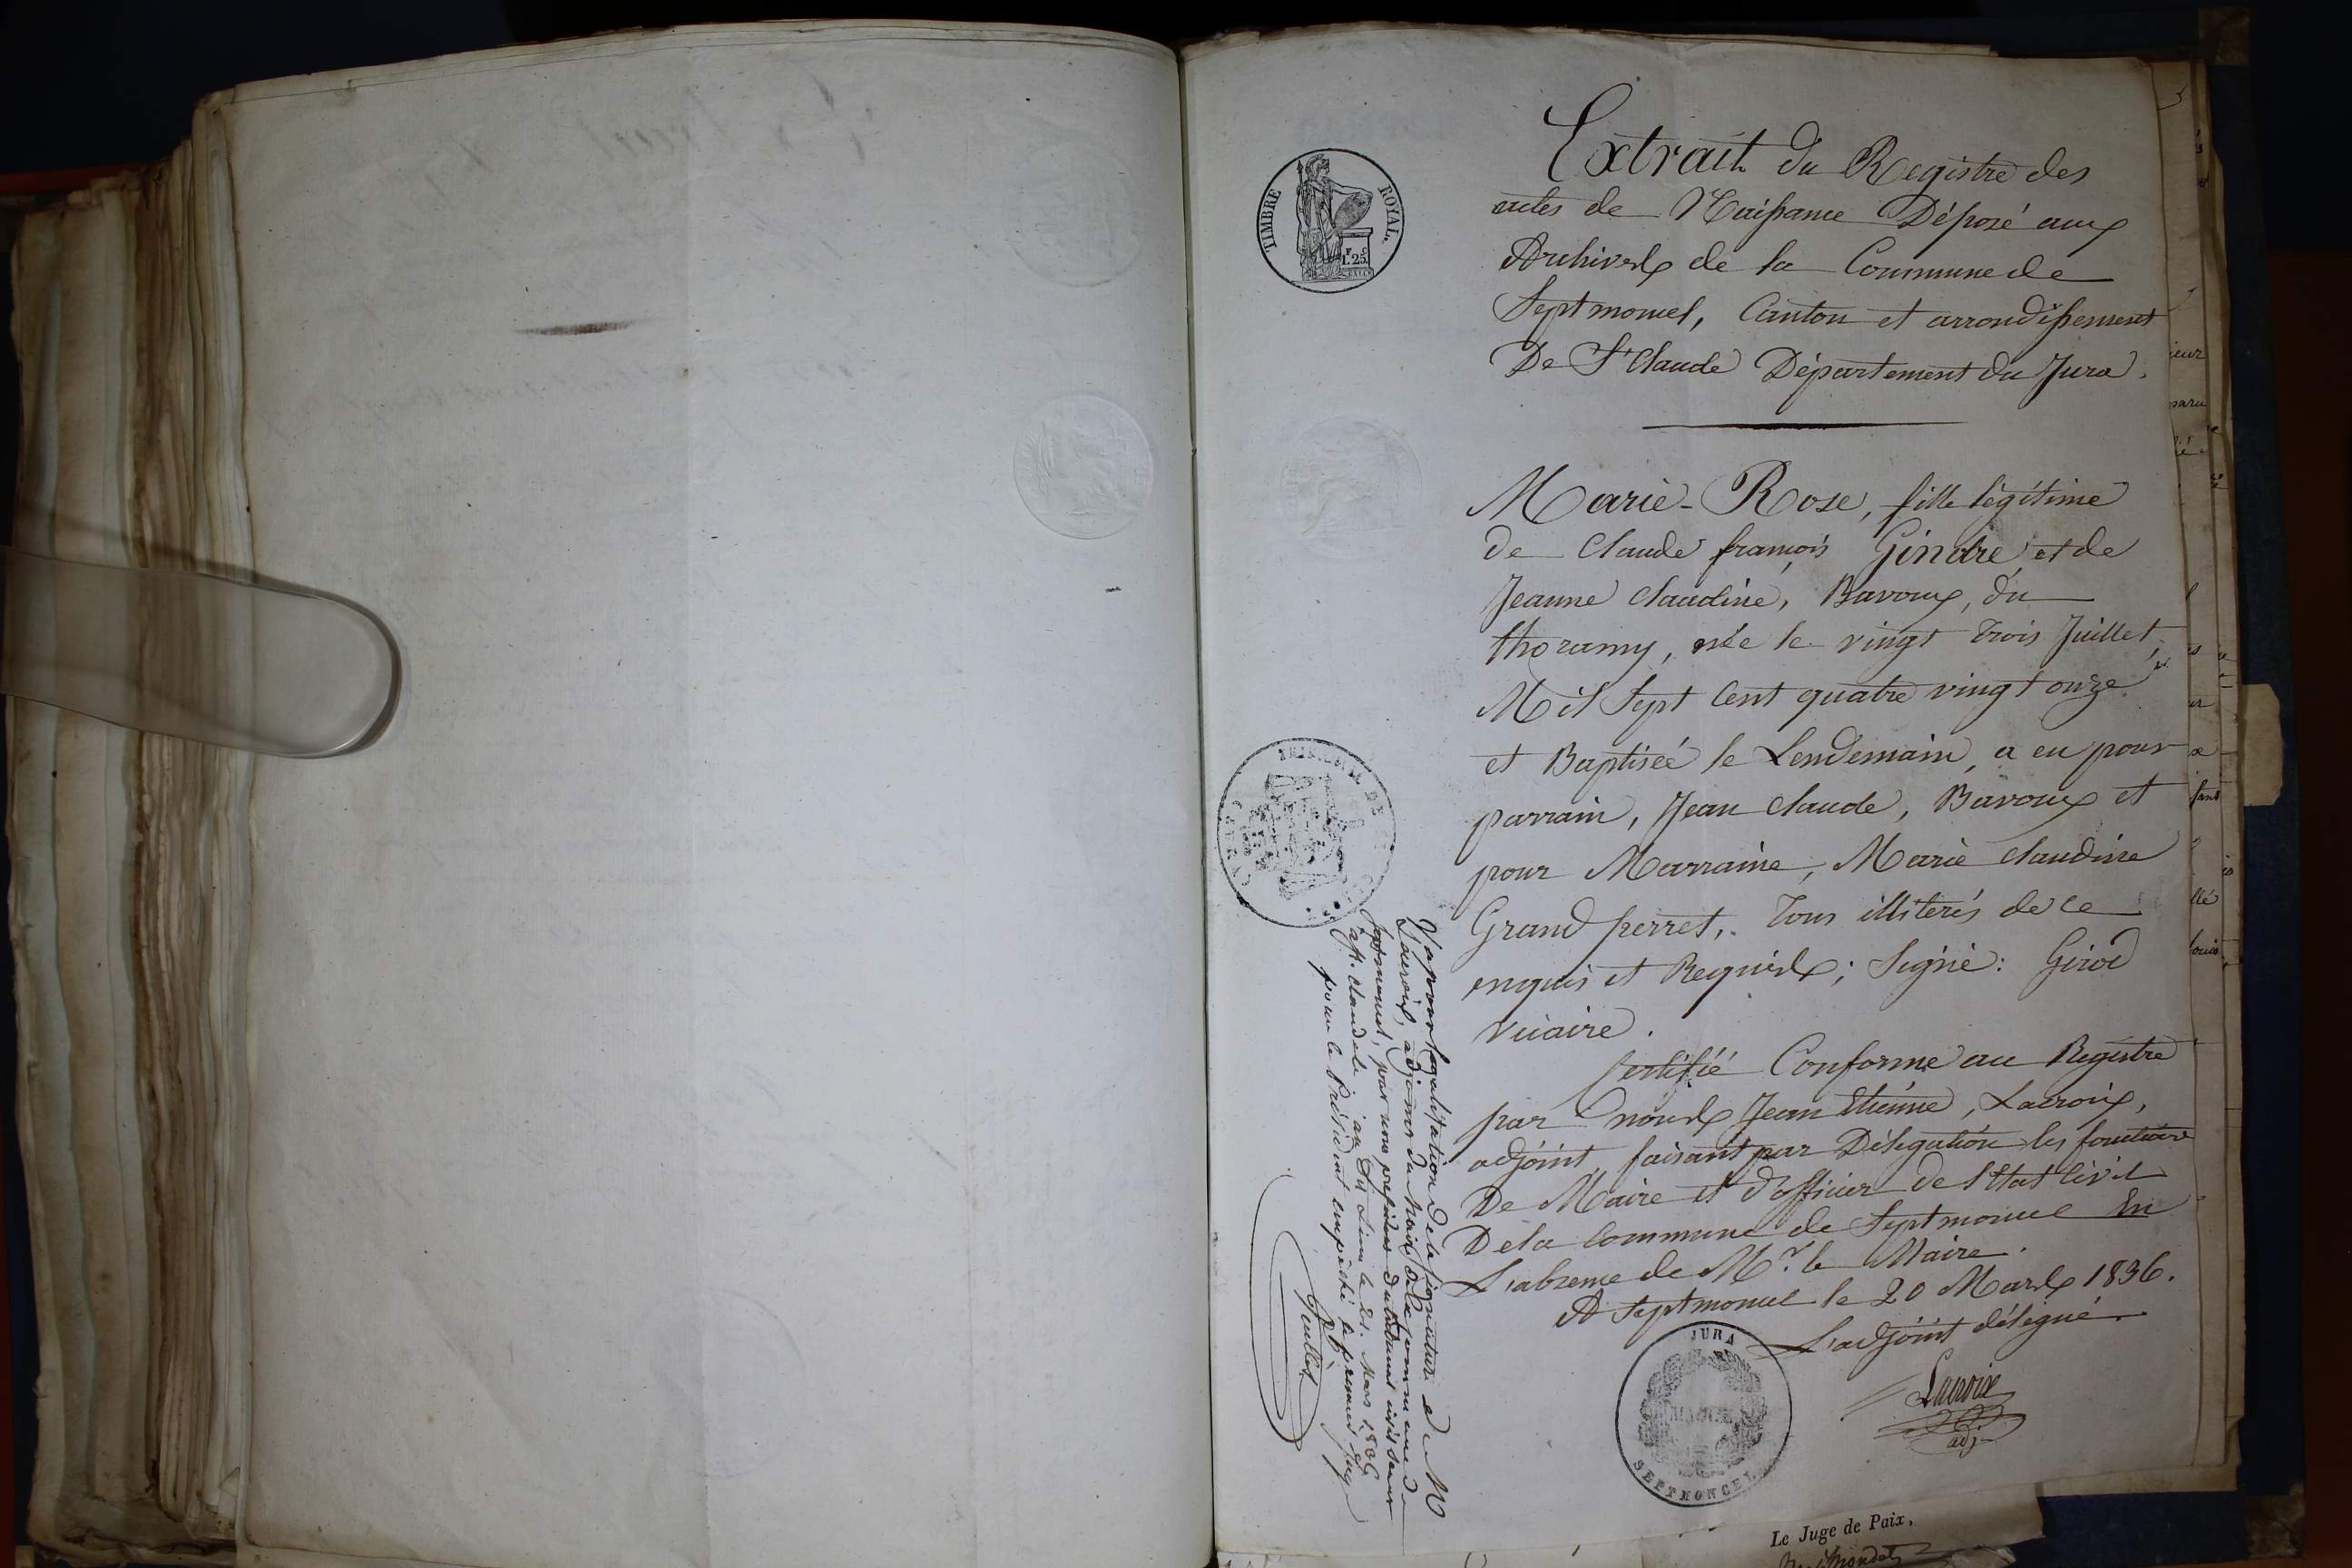 Extrait du Registre des
actes de Naissance Déposé aux
Archives de la Commune de
Septmoncel, Canton et arrondissement
De St Claude Département du Jura.
TIMBRE ROYAL.
F C
1.25
Marie-Rose, fille légitime
de Claude françois Gindre, et de
Jeanne Claudine, Bavoux, du
thoramy, née le vingt trois Juillet,
Mil Sept Cent quatre vingt onze
et Baptisée le Lendemain, a eu pour
parrain, Jean Claude, Bavoux et
pour Marraine, Marie Claudine
Grand perret, Tous illiterés de ce
enquis et Requis; Signé: Girod
vicaire.
Certifié Conforme au Registre
par nous Jean Etienne, Lacroix,
adjoint, faisant par Délégation les fonctions
De Maire et d'officier de l'Etat Civil
De la Commune de Septmoncel En
L'absence de Mr. le Maire.
A Septmoncel le 20 Mars 1836.
L'adjoint délégué.
Lacroix
adj.
JURA
SEPTMONCEL
Vu pour légalisation de la signature de M
Lacroix, adjoint du Maire de la Commune de
Septmoncel, par nous président du tribunal civil séant
à St. Claude le 21. Mars 1836
pour le Président empêché le premier Juge
Le Juge de Paix,